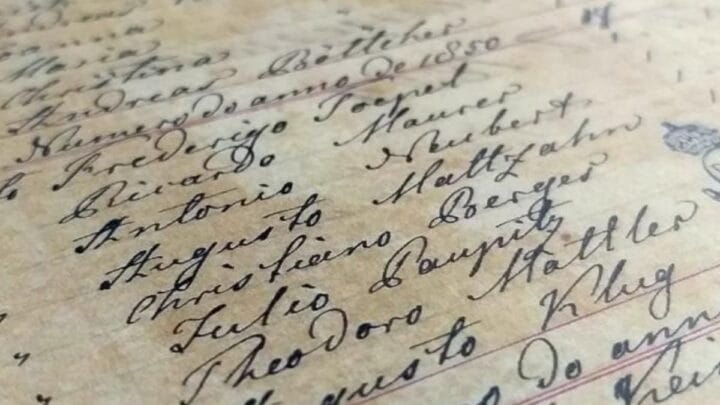 Maria
Christina
Andreas Böttcher
Numero do anno de 1850
Frederigo Toepel
Ricardo Maurer
Antonio Neubert
Augusto Maltzahn
Christiano Berger
Julio Paupitz
Theodoro Mättler
Augusto Klug
do anno